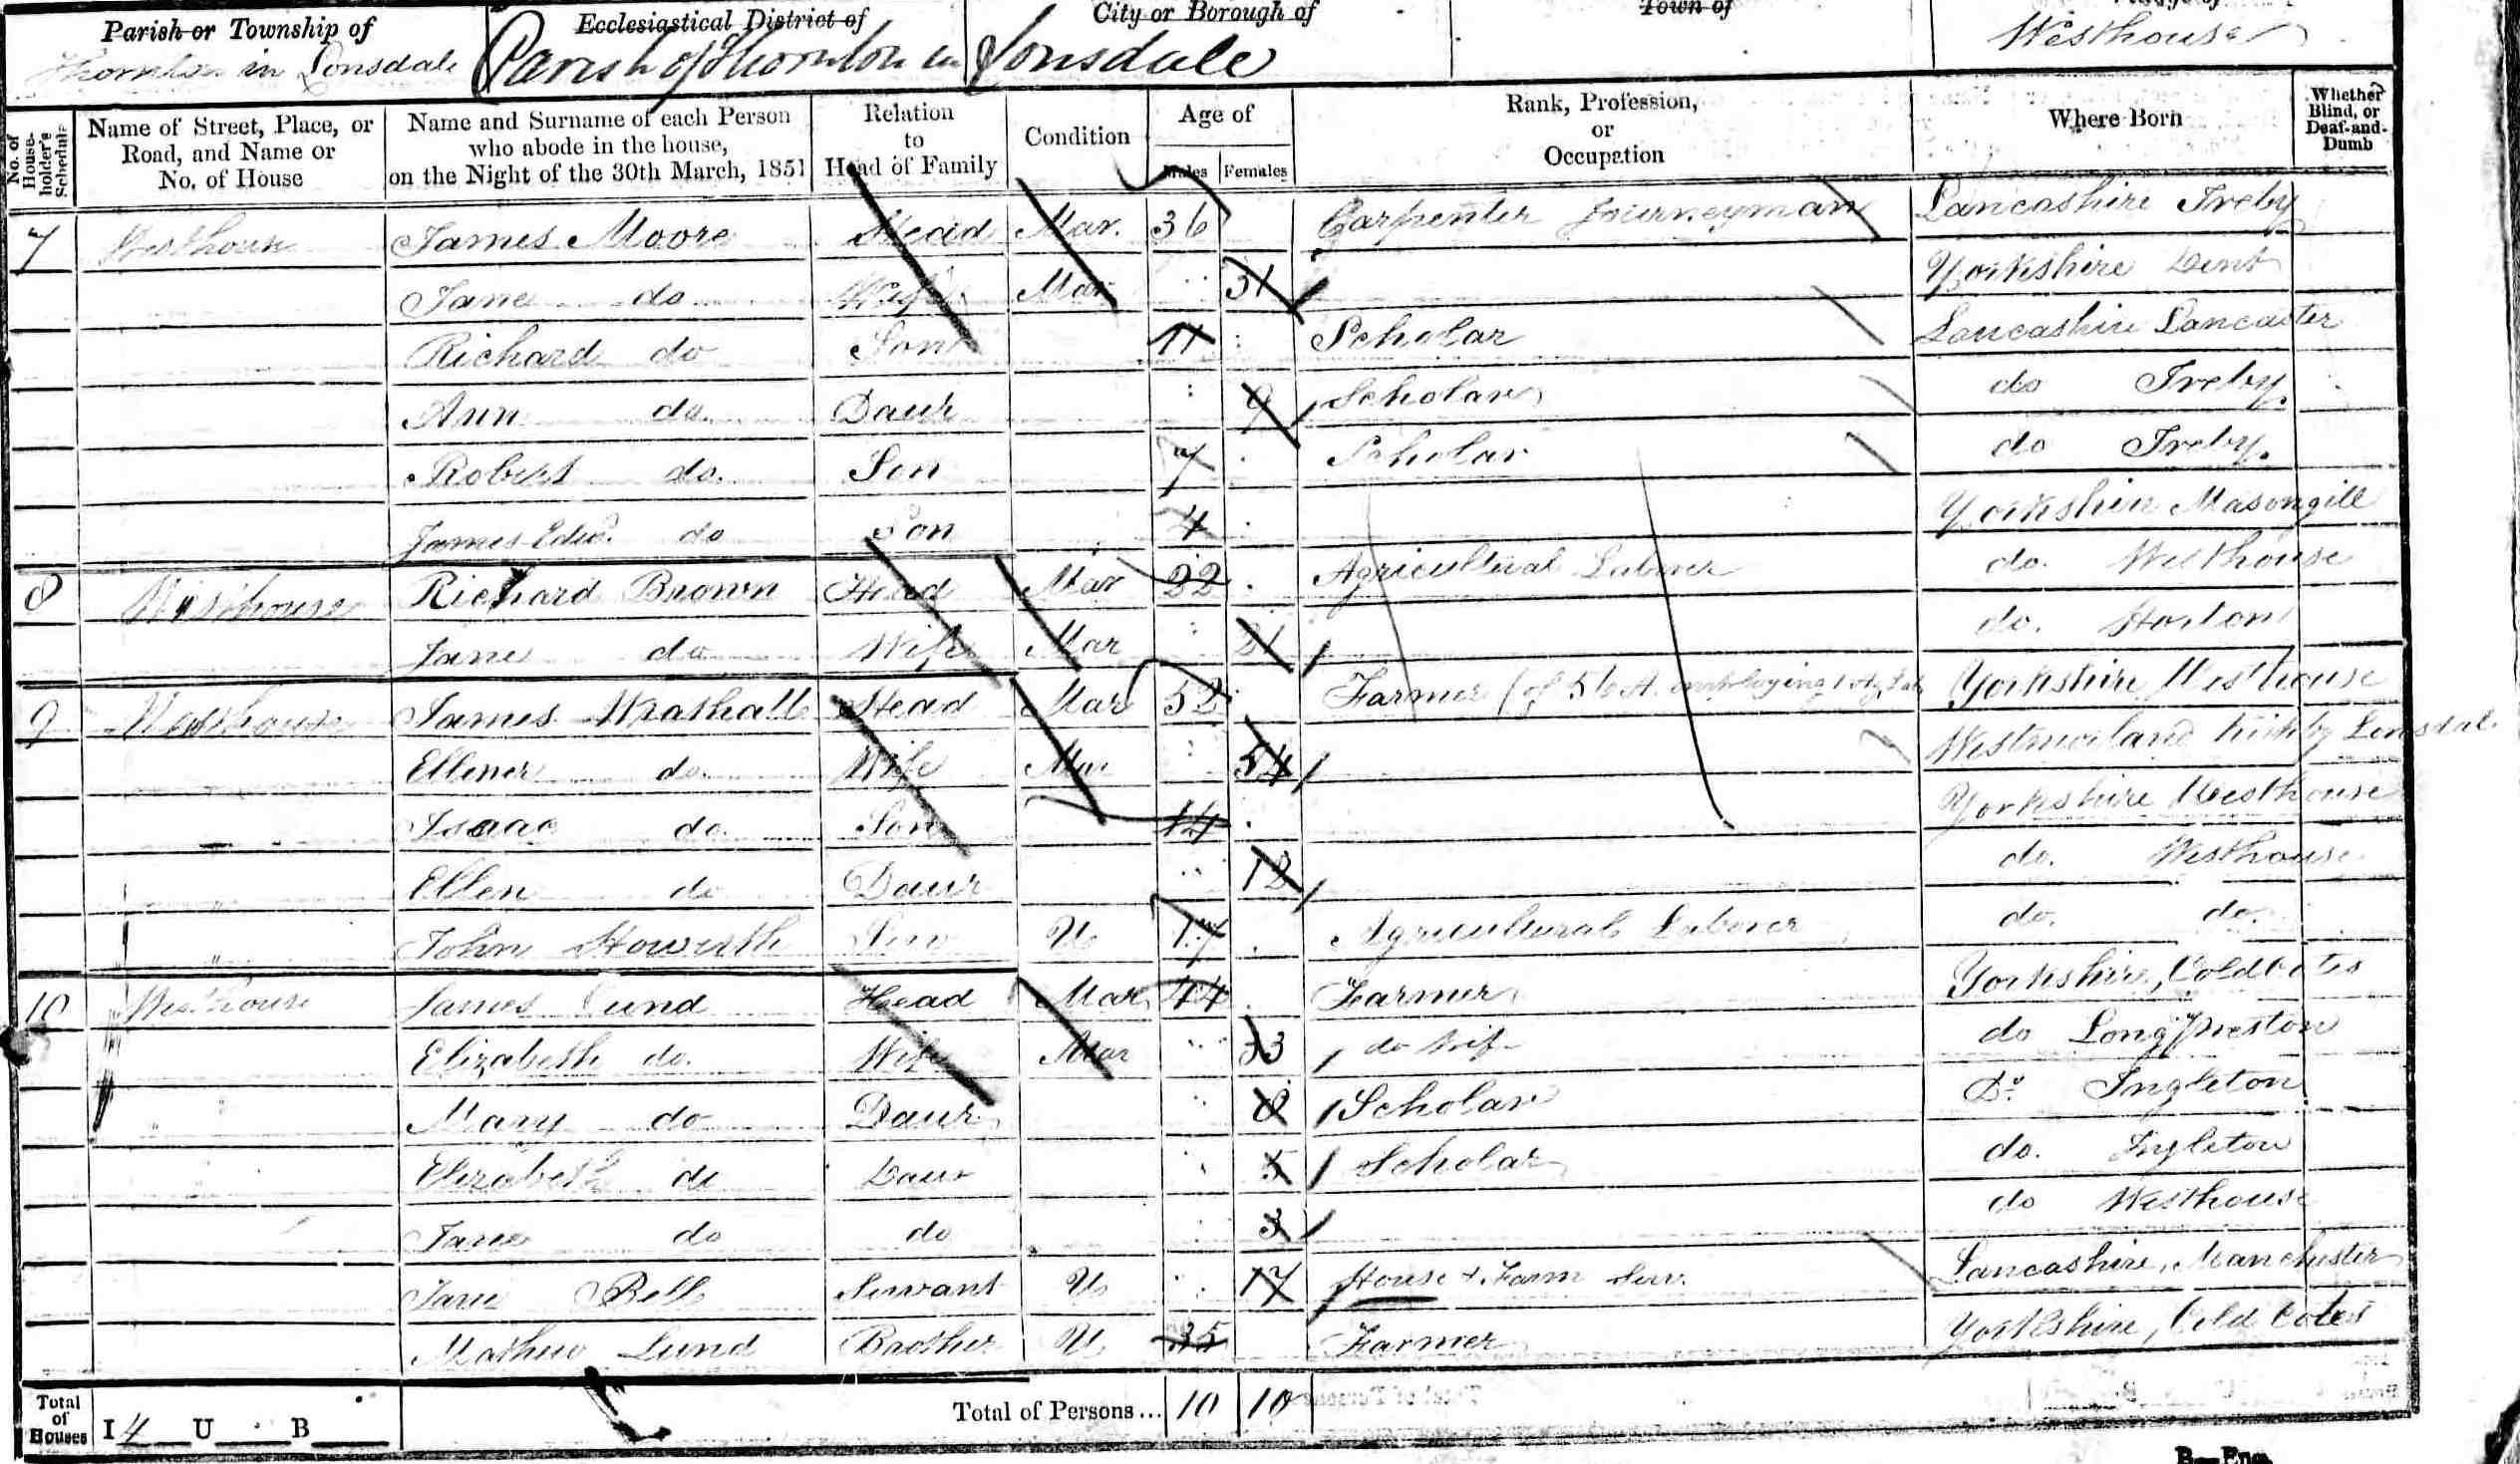 Parish or Township of Ecclesiastical District of City or Borough of Town of
Thornton in Lonsdale Parish of Thornton in Lonsdale Westhouse
No. of House-holder's Schedule Name of Street, Place, or Road, and Name or No. of House Name and Surname of each Person who abode in the house, on the Night of the 30th March, 1851 Relation to Head of Family Condition Age of Males Females Rank, Profession, or Occupation Where Born Whether Blind, or Deaf-and-Dumb
7 Westhouse James Moore Head Mar. 36 Carpenter Journeyman Lancashire Ireby
Jane do Wife Mar 31 Yorkshire Dent
Richard do Son 11 Scholar Lancashire Lancaster
Ann do. Daur 9 Scholar do Ireby.
Robert do. Son 7 Scholar do Ireby.
James Edwd. do Son 4 Yorkshire Masongill
8 Westhouse Richard Brown Head Mar 22 Agricultural Laborer do. Westhouse
Jane do Wife Mar 21 do. Horton
9 Westhouse James Wrathall Head Mar 52 Farmer (of 56 A. employing 1 Ag. Lab Yorkshire Westhouse
Ellener do. Wife Mar 54 Westmorland Kirkby Lonsdale
Isaac do. Son 14 Yorkshire Westhouse
Ellen do Daur 12 do. Westhouse
" John Howorth Serv U 17 Agricultural Laborer do. do.
10 Westhouse James Lund Head Mar 44 Farmer Yorkshire, Coldcotes
Elizabeth do. Wife Mar 33 do Wife do Long Preston
" Mary do Daur 8 Scholar Do. Ingleton
Elizabeth do Daur 5 Scholar do. Ingleton
Jane do do 3 do Westhouse
Jane Bell Servant U 17 House & Farm Serv. Lancashire, Manchester
Mathew Lund Brother U 35 Farmer Yorkshire, Cold Cotes
Total of Houses I 4 U B Total of Persons... 10 10
B—Eng.